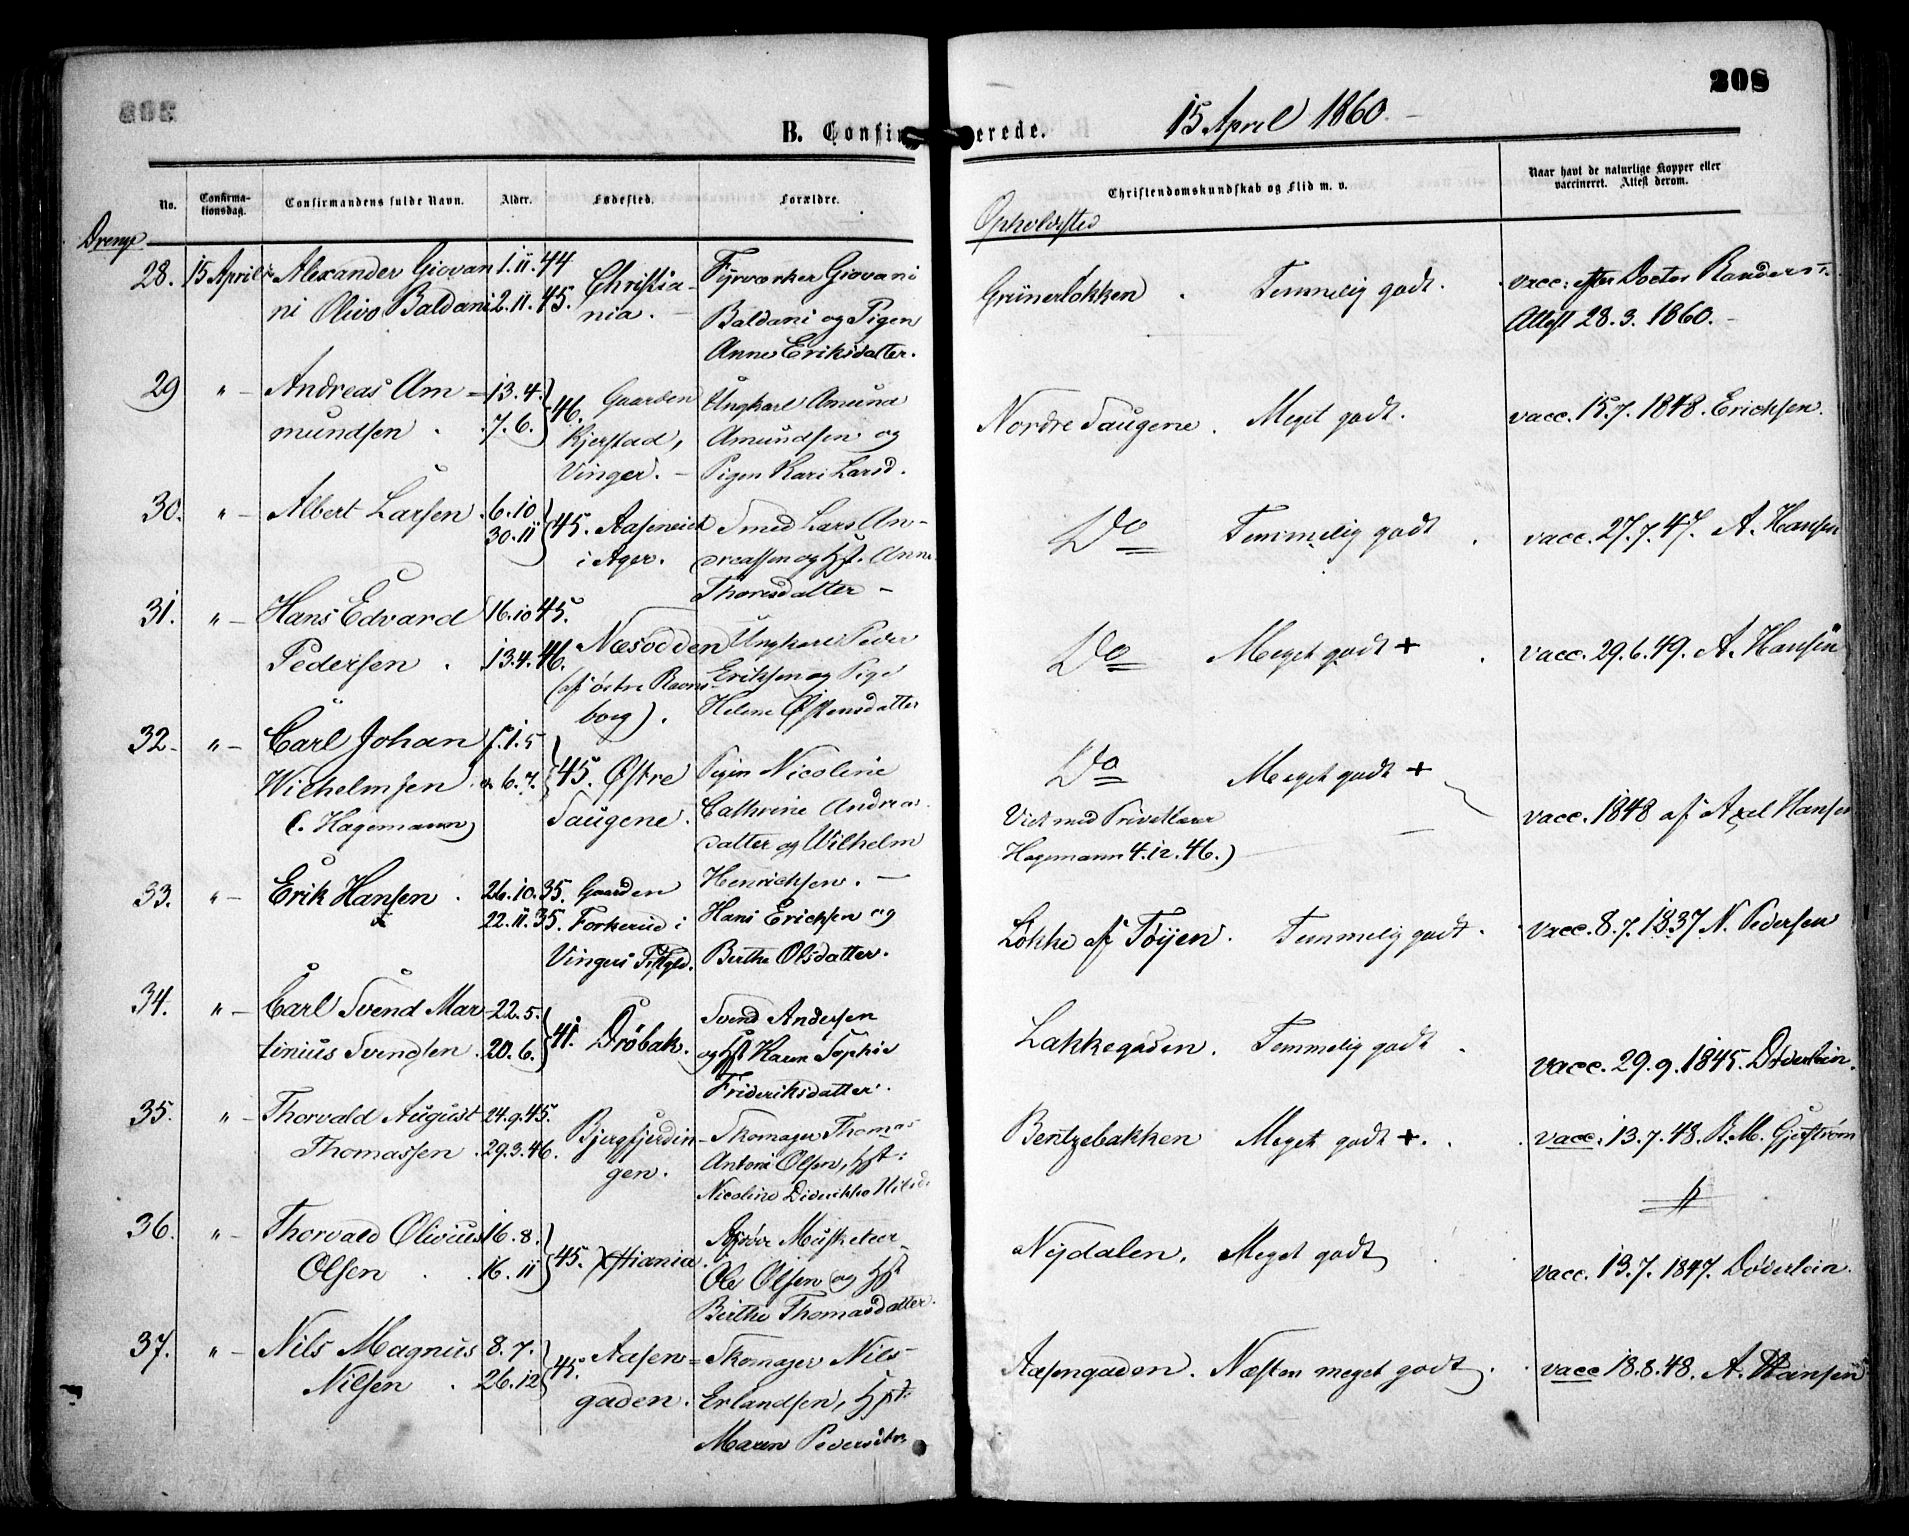 208
B. Confirmerede.
15 April 1860.
No.
Confirma-
tionsdag.
Confirmandens fulde Navn.
Alder.
Fødested.
Forældre.
Christendomskundskab og Flid m. v.
Naar havt de naturlige Kopper eller
vaccineret. Attest derom.
Drenge
Opholdssted
28. 15 April Alexander Giovan 1.11.44 Christia- Fyrværker Giovani
ni Olivo Baldani 2.11.45. nia. Baldani og Pigen
Anne Eriksdatter.
Grünerløkken. Temmelig godt. vacc. efter Doctor Randers
Attest 28.3.1860.
29 " Andreas Am- 13.4. 46. Gaarden Ungkarl Amund
mundsen. 7.6. Kjerstad, Amundsen og
Vinger. Pigen Kari Larsd.
Nordre Saugene. Meget godt. vacc. 15.7.1848. Erichsen.
30. " Albert Larsen 6.10 45. Aasenveien Smed Lars An-
30.11 i Ager. dreassen og Hst. Anne
Thoresdatter
Do Temmelig godt. vacc. 27.7.47. A. Hansen
31. " Hans Edvard 16.10 45. Næsodden Ungkarl Peder
Pedersen. 13.4.46. (af østre Ravns- Eriksen og Pige
borg). Helene Østensdatter
Do Meget godt + vacc. 29.6.49. A. Hansen
32. " Carl Johan f. 1.5 45. Østre Pigen Nicoline
Wilhelmsen 6.7. Saugene. Cathrine Andreas
(C. Hagemann) datter og Wilhelm
Henrichsen.
Do Meget godt +
Viet med Privatlærer
Hagemann 4.12.46.) vacc. 1848 af Axel Hansen
33. " Erik Hansen. 26.10.35. Gaarden Hans Erichsen og
x 22.11.35. Forkerud i Berthe Olsdatter.
Vingers Pgjld.
Løkke af Tøyen. Temmelig godt. vacc. 8.7.1837 N. Pedersen
34. " Carl Svend Mar 22.5. 41. Dröbak. Svend Andersen
tinius Svendsen. 20.6. og Hst Karen Sophie
Frideriksdatter.
Lakkegaden. Temmelig godt. vacc. 29.9.1845. Döderlein.
35. " Thorvald August 24.9.45. Bjergfjerdin- Skomager Thomas
Thomassen 29.3.46. gen. Anton Olsen, Hst:
Nicoline Didrikke Nilsd.
Bentzebakken Meget godt +. vacc. 13.7.48. B.M. Gjestrøm
36. " Thorvald Olivius 16.8. 45. Xstiania. Afdøde Musketeer
Olsen. 16.11 Ole Olsen og Hst
Berthe Thomasdatter.
Nydalen. Meget godt vacc. 13.7.1847. Döderlein.
37. " Nils Magnus 8.7. 45. Aasen- Skomager Nils
Nilsen. 26.12 gaden. Erlandsen, Hst:
Maren Pedersdtr.
Aasengaden. Næsten meget godt. vacc 18.8.48. A. Hansen